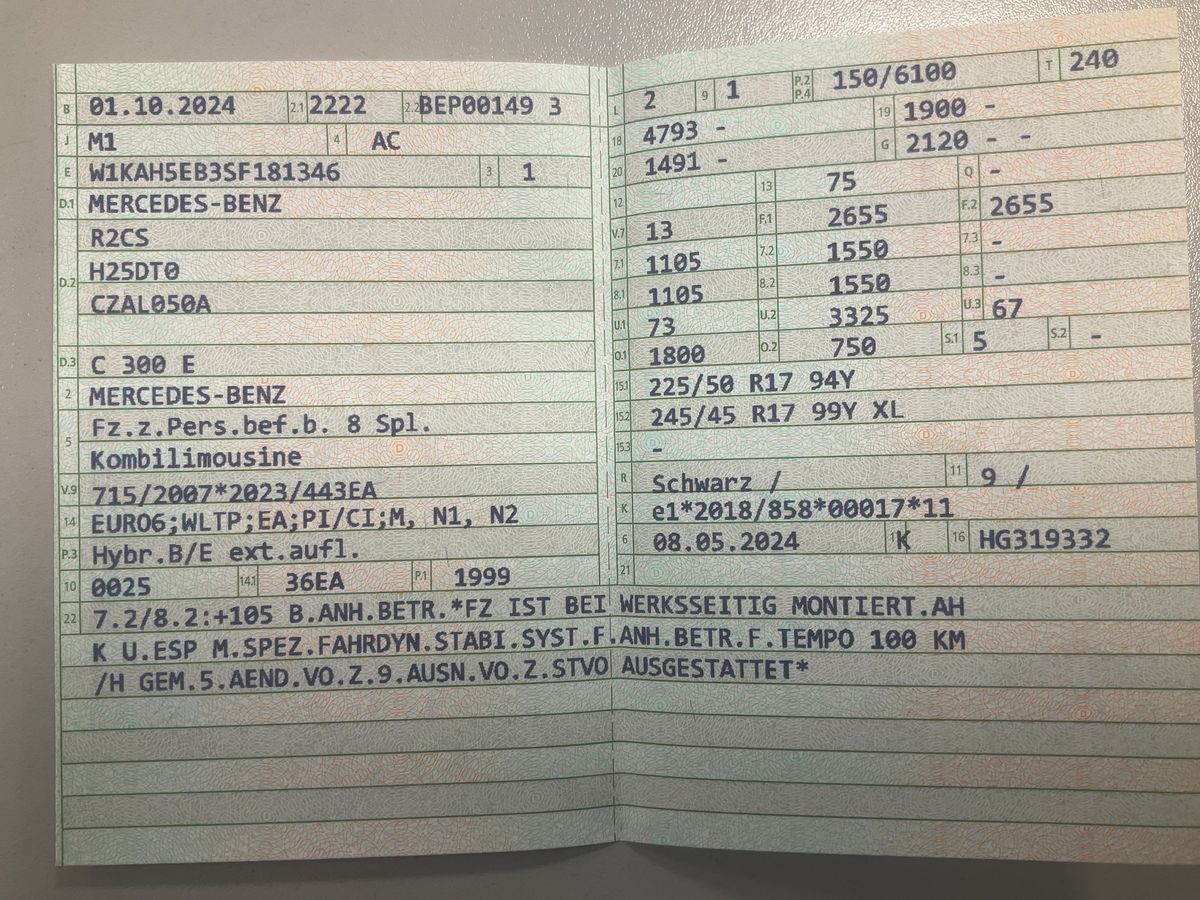 B 01.10.2024 2.1 2222 2.2 BEP00149 3
J M1 4 AC
E W1KAH5EB3SF181346 3 1
D.1 MERCEDES-BENZ
R2CS
D.2 H25DT0
CZAL050A
D.3 C 300 E
2 MERCEDES-BENZ
5 Fz.z.Pers.bef.b. 8 Spl.
Kombilimousine
V.9 715/2007*2023/443EA
14 EURO6;WLTP;EA;PI/CI;M, N1, N2
P.3 Hybr.B/E ext.aufl.
10 0025 14.1 36EA P.1 1999
L 2 9 1 P.2 P.4 150/6100 T 240
18 4793 - 19 1900 -
20 1491 - G 2120 - -
12 13 75 Q -
V.7 13 F.1 2655 F.2 2655
7.1 1105 7.2 1550 7.3 -
8.1 1105 8.2 1550 8.3 -
U.1 73 U.2 3325 U.3 67
O.1 1800 O.2 750 S.1 5 S.2 -
15.1 225/50 R17 94Y
15.2 245/45 R17 99Y XL
15.3 -
R Schwarz / 11 9 /
K e1*2018/858*00017*11
6 08.05.2024 K 16 HG319332
21
22 7.2/8.2:+105 B.ANH.BETR.*FZ IST BEI WERKSSEITIG MONTIERT.AH
K U.ESP M.SPEZ.FAHRDYN.STABI.SYST.F.ANH.BETR.F.TEMPO 100 KM
/H GEM.5.AEND.VO.Z.9.AUSN.VO.Z.STVO AUSGESTATTET*